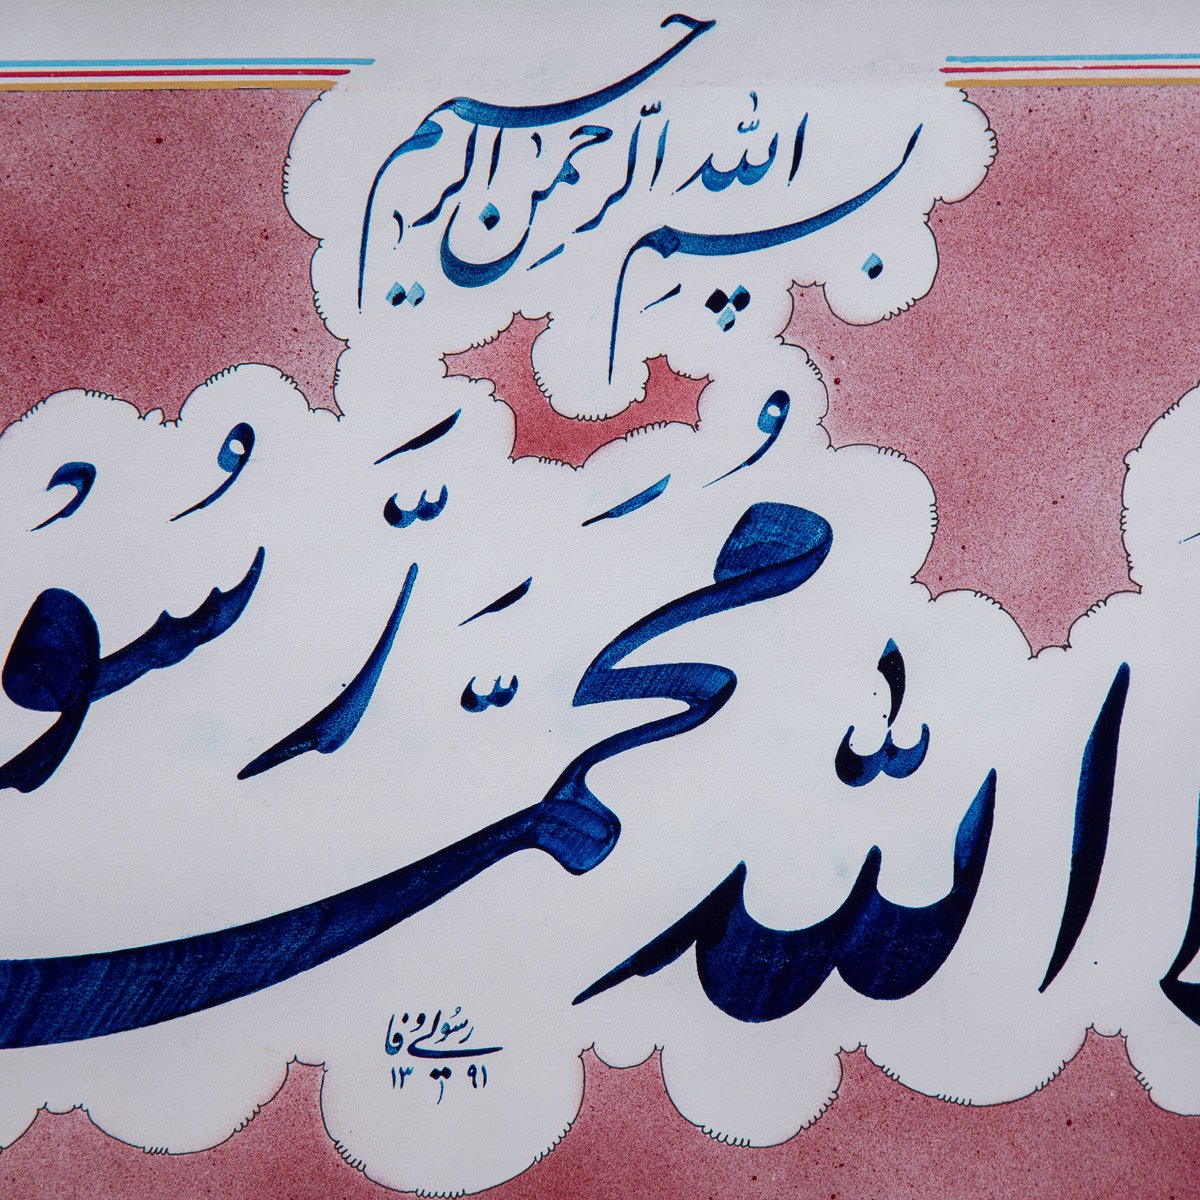 بسم الله الرحمن الرحیم
الله محمد رسو
رسولی وفا
۱۳۹۱